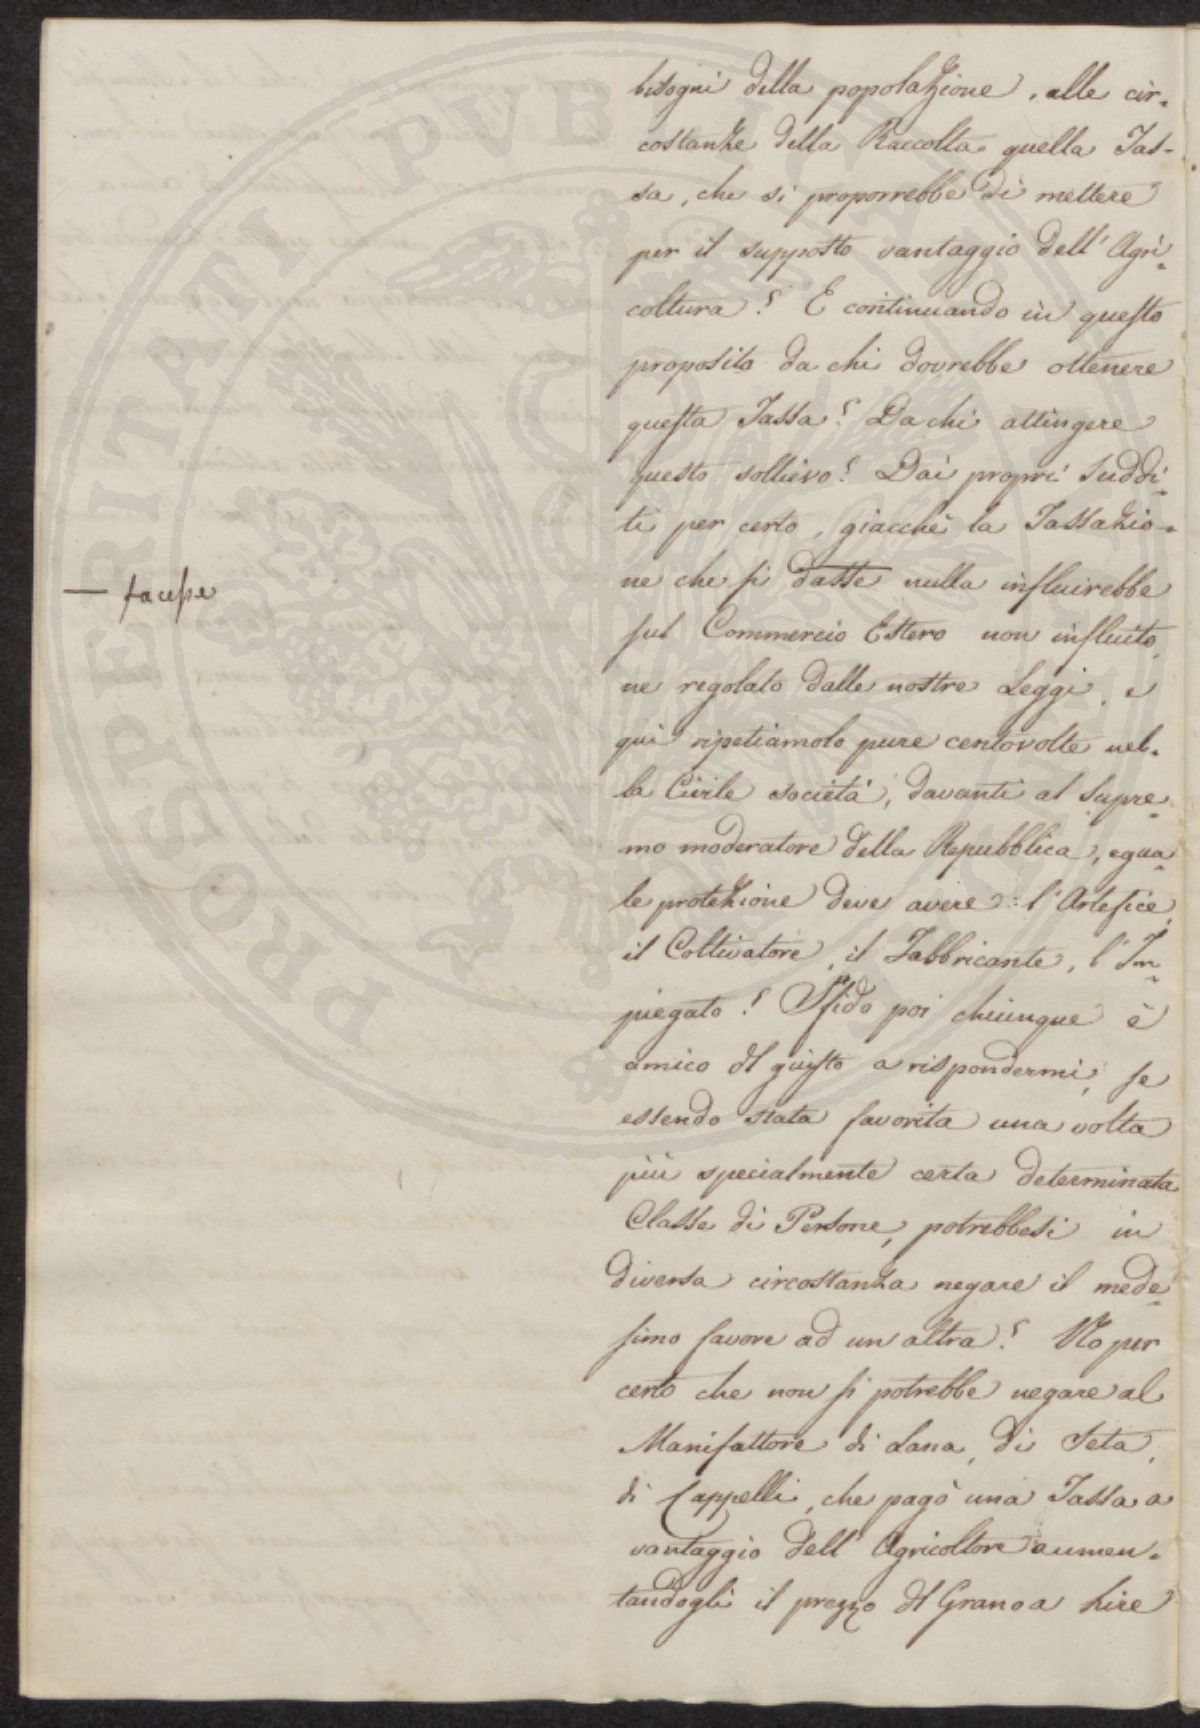 bisogni della popolazione, alle cir-
costanze della Raccolta quella Tas-
sa, che si proporrebbe di mettere
per il supposto vantaggio dell' Agri-
coltura? E continuando in questo
proposito da chi dovrebbe ottenere
questa Tassa? Da chi attingere
questo sollievo? Dai proprj Suddi-
ti per certo, giacchè la Tassazio-
ne che si dasse nulla influirebbe
— facesse
sul Commercio Estero non influito,
ne regolato dalle nostre Leggi, e
quì ripetiamolo pure centovolte nel-
la Civile società, davanti al Supre-
mo moderatore della Repubblica, egua-
le protezione deve avere: l'Artefice,
il Coltivatore, il Fabbricante, l'Im-
piegato! Sfido poi chiunque è
amico del giusto a rispondermi, se
essendo stata favorita una volta
più specialmente certa determinata
Classe di Persone, potrebbesi in
diversa circostanza negare il mede-
simo favore ad un altra? No per
certo che non si potrebbe negare al
Manifattore di Lana, di Seta,
di Cappelli, che pagò una Tassa a
vantaggio dell' Agricoltore aumen-
tandogli il prezzo del Grano a Lire
PROSPERITATI PVBLICAE